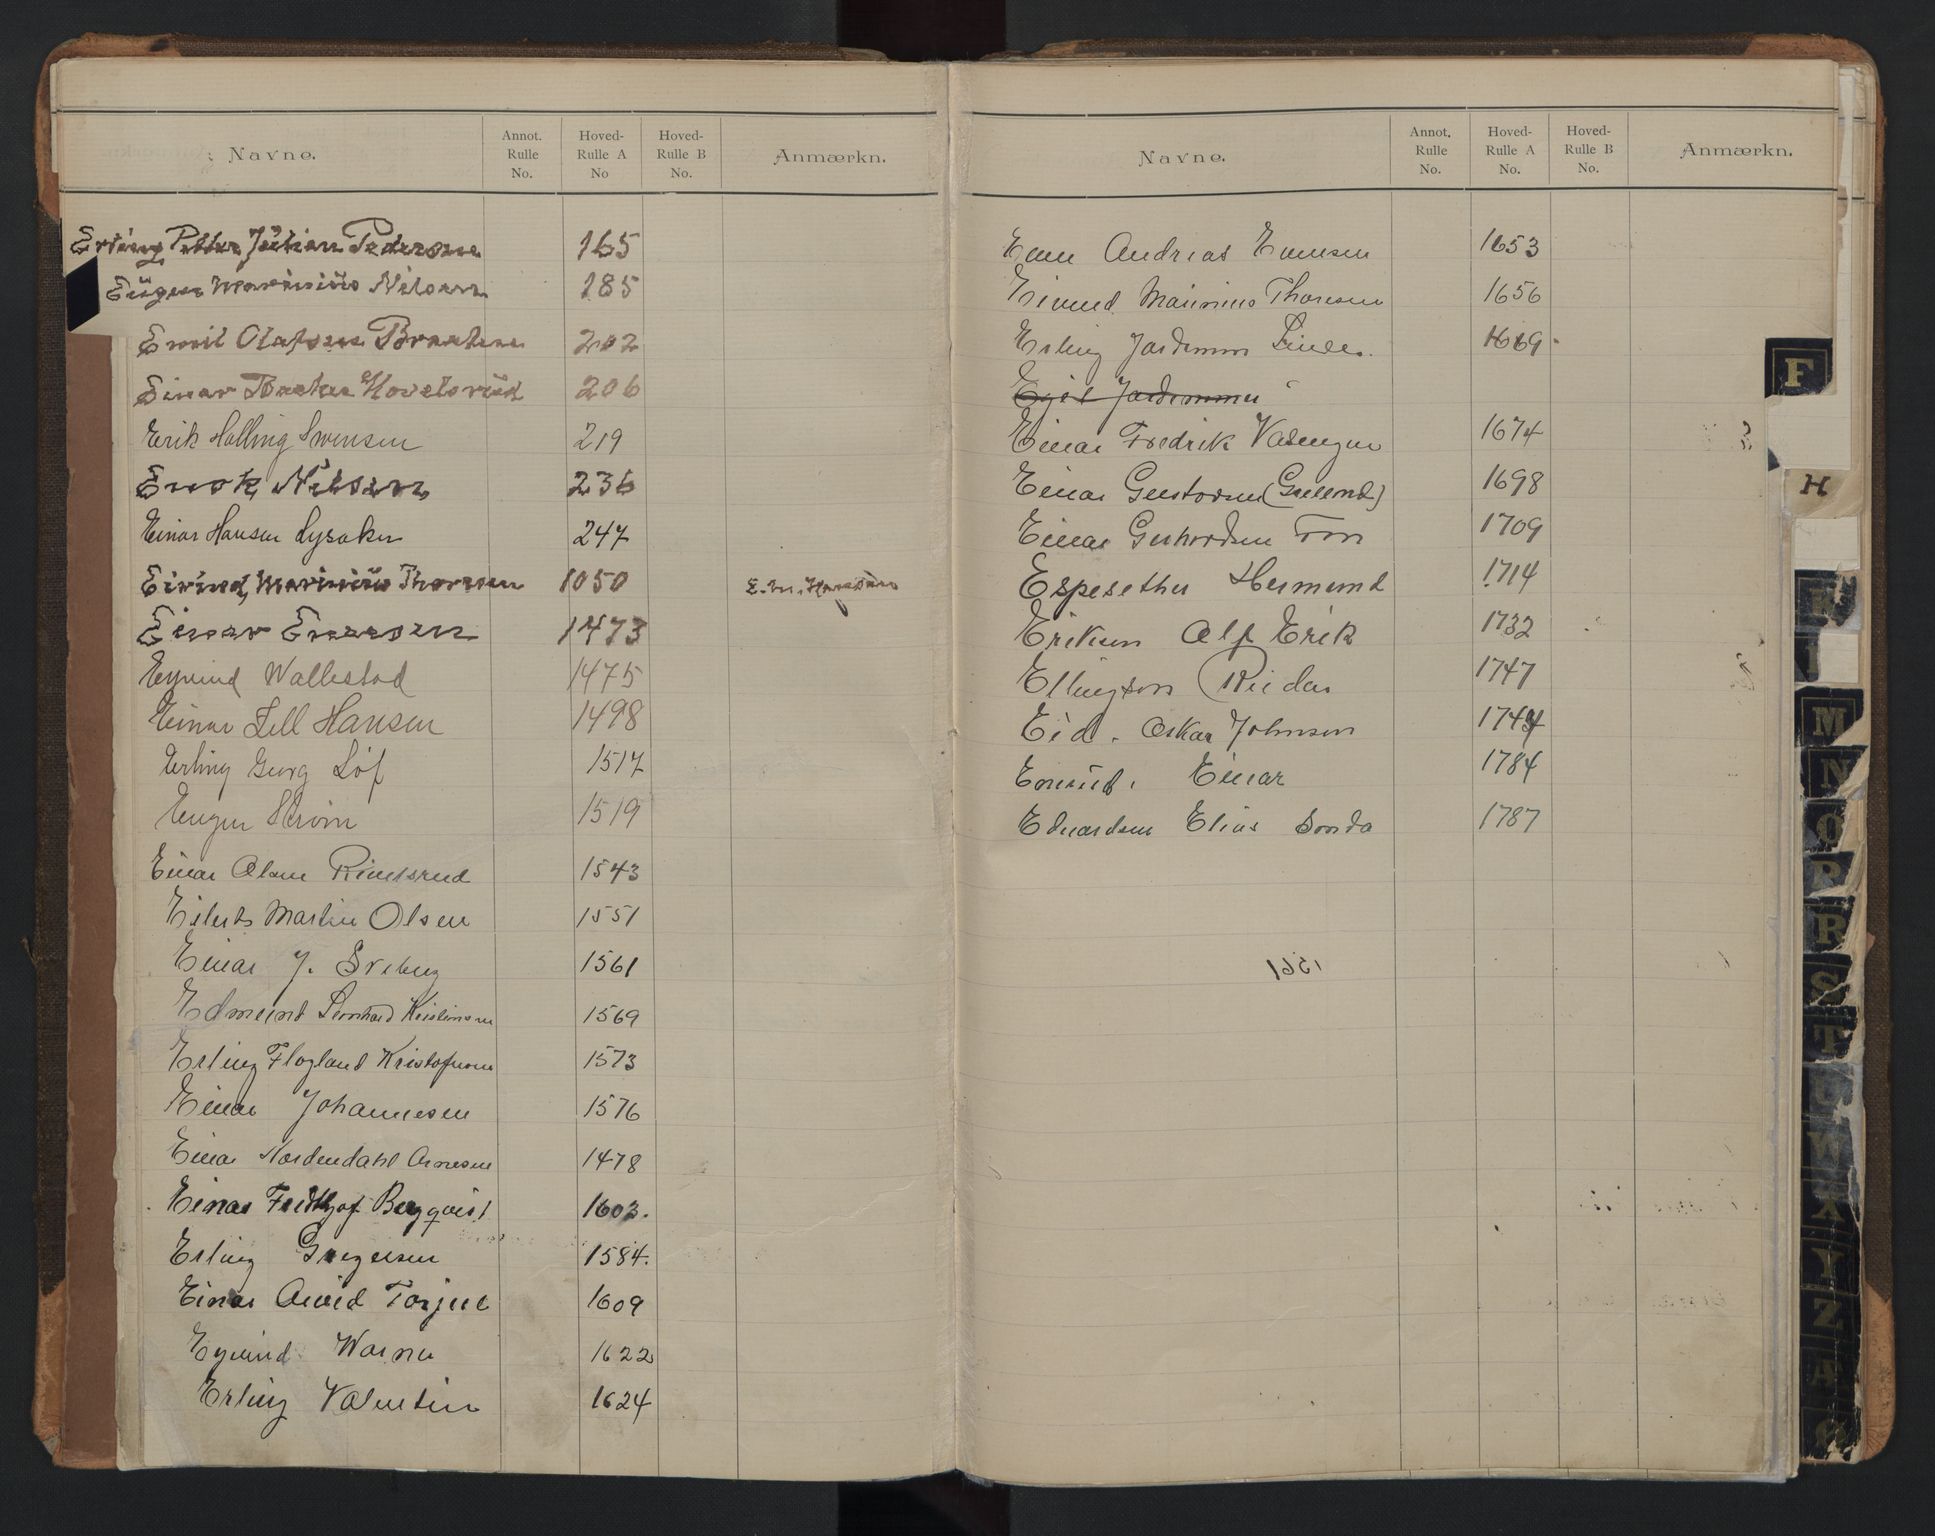 Navne. Annot. Rulle No. Hoved-Rulle A No Hoved-Rulle B No. Anmærkn.
Erling Petter Julian Pedersen 165
Eugen Marinius Nilsen 185
Emil Olafsen Braaten 202
Einar 206
Erik Halling Svensen 219
Enok Nilsen 236
Einar Hansen Lysaker 247
Eivind Marinius Thoresen 1050 E. M. Hansen
Einar Enersen 1473
Eyvind Wallestad 1475
Einar Lell Hansen 1498
Erling Georg Löf 1517
Eugen Strøm 1519
Einar Olsen 1543
Eilert Martin Olsen 1551
Einar J. 1561
Edmund Lenhard Kristensen 1569
Erling Flogland Kristofersen 1573
Einar Johannesen 1576
Einar Nordendahl Arnesen 1478
Einar Fridthjof Bergqvist 1603.
Erling Gregersen 1584.
Einar Arvid Torjus 1609
Eyvind Warner 1622
Erling Valentin 1624
Navne. Annot. Rulle No. Hoved-Rulle A No. Hoved-Rulle B No. Anmærkn.
Andreas 1653
Eivind Marinius Thoresen 1656
Erling 1669
Egil
Einar Fredrik Valengen 1674
Einar Gustavsen 1698
Einar Gerhardsen 1709
Espesether Hermund 1714
Eriksen Alf Erik 1732
Ellingson Reidar 1747
Eid. Oskar Johnson 1744
Einar 1784
Edvardsen Elias 1787
F
H
K
M
N
O
P
R
S
T
W
X
Y
Z